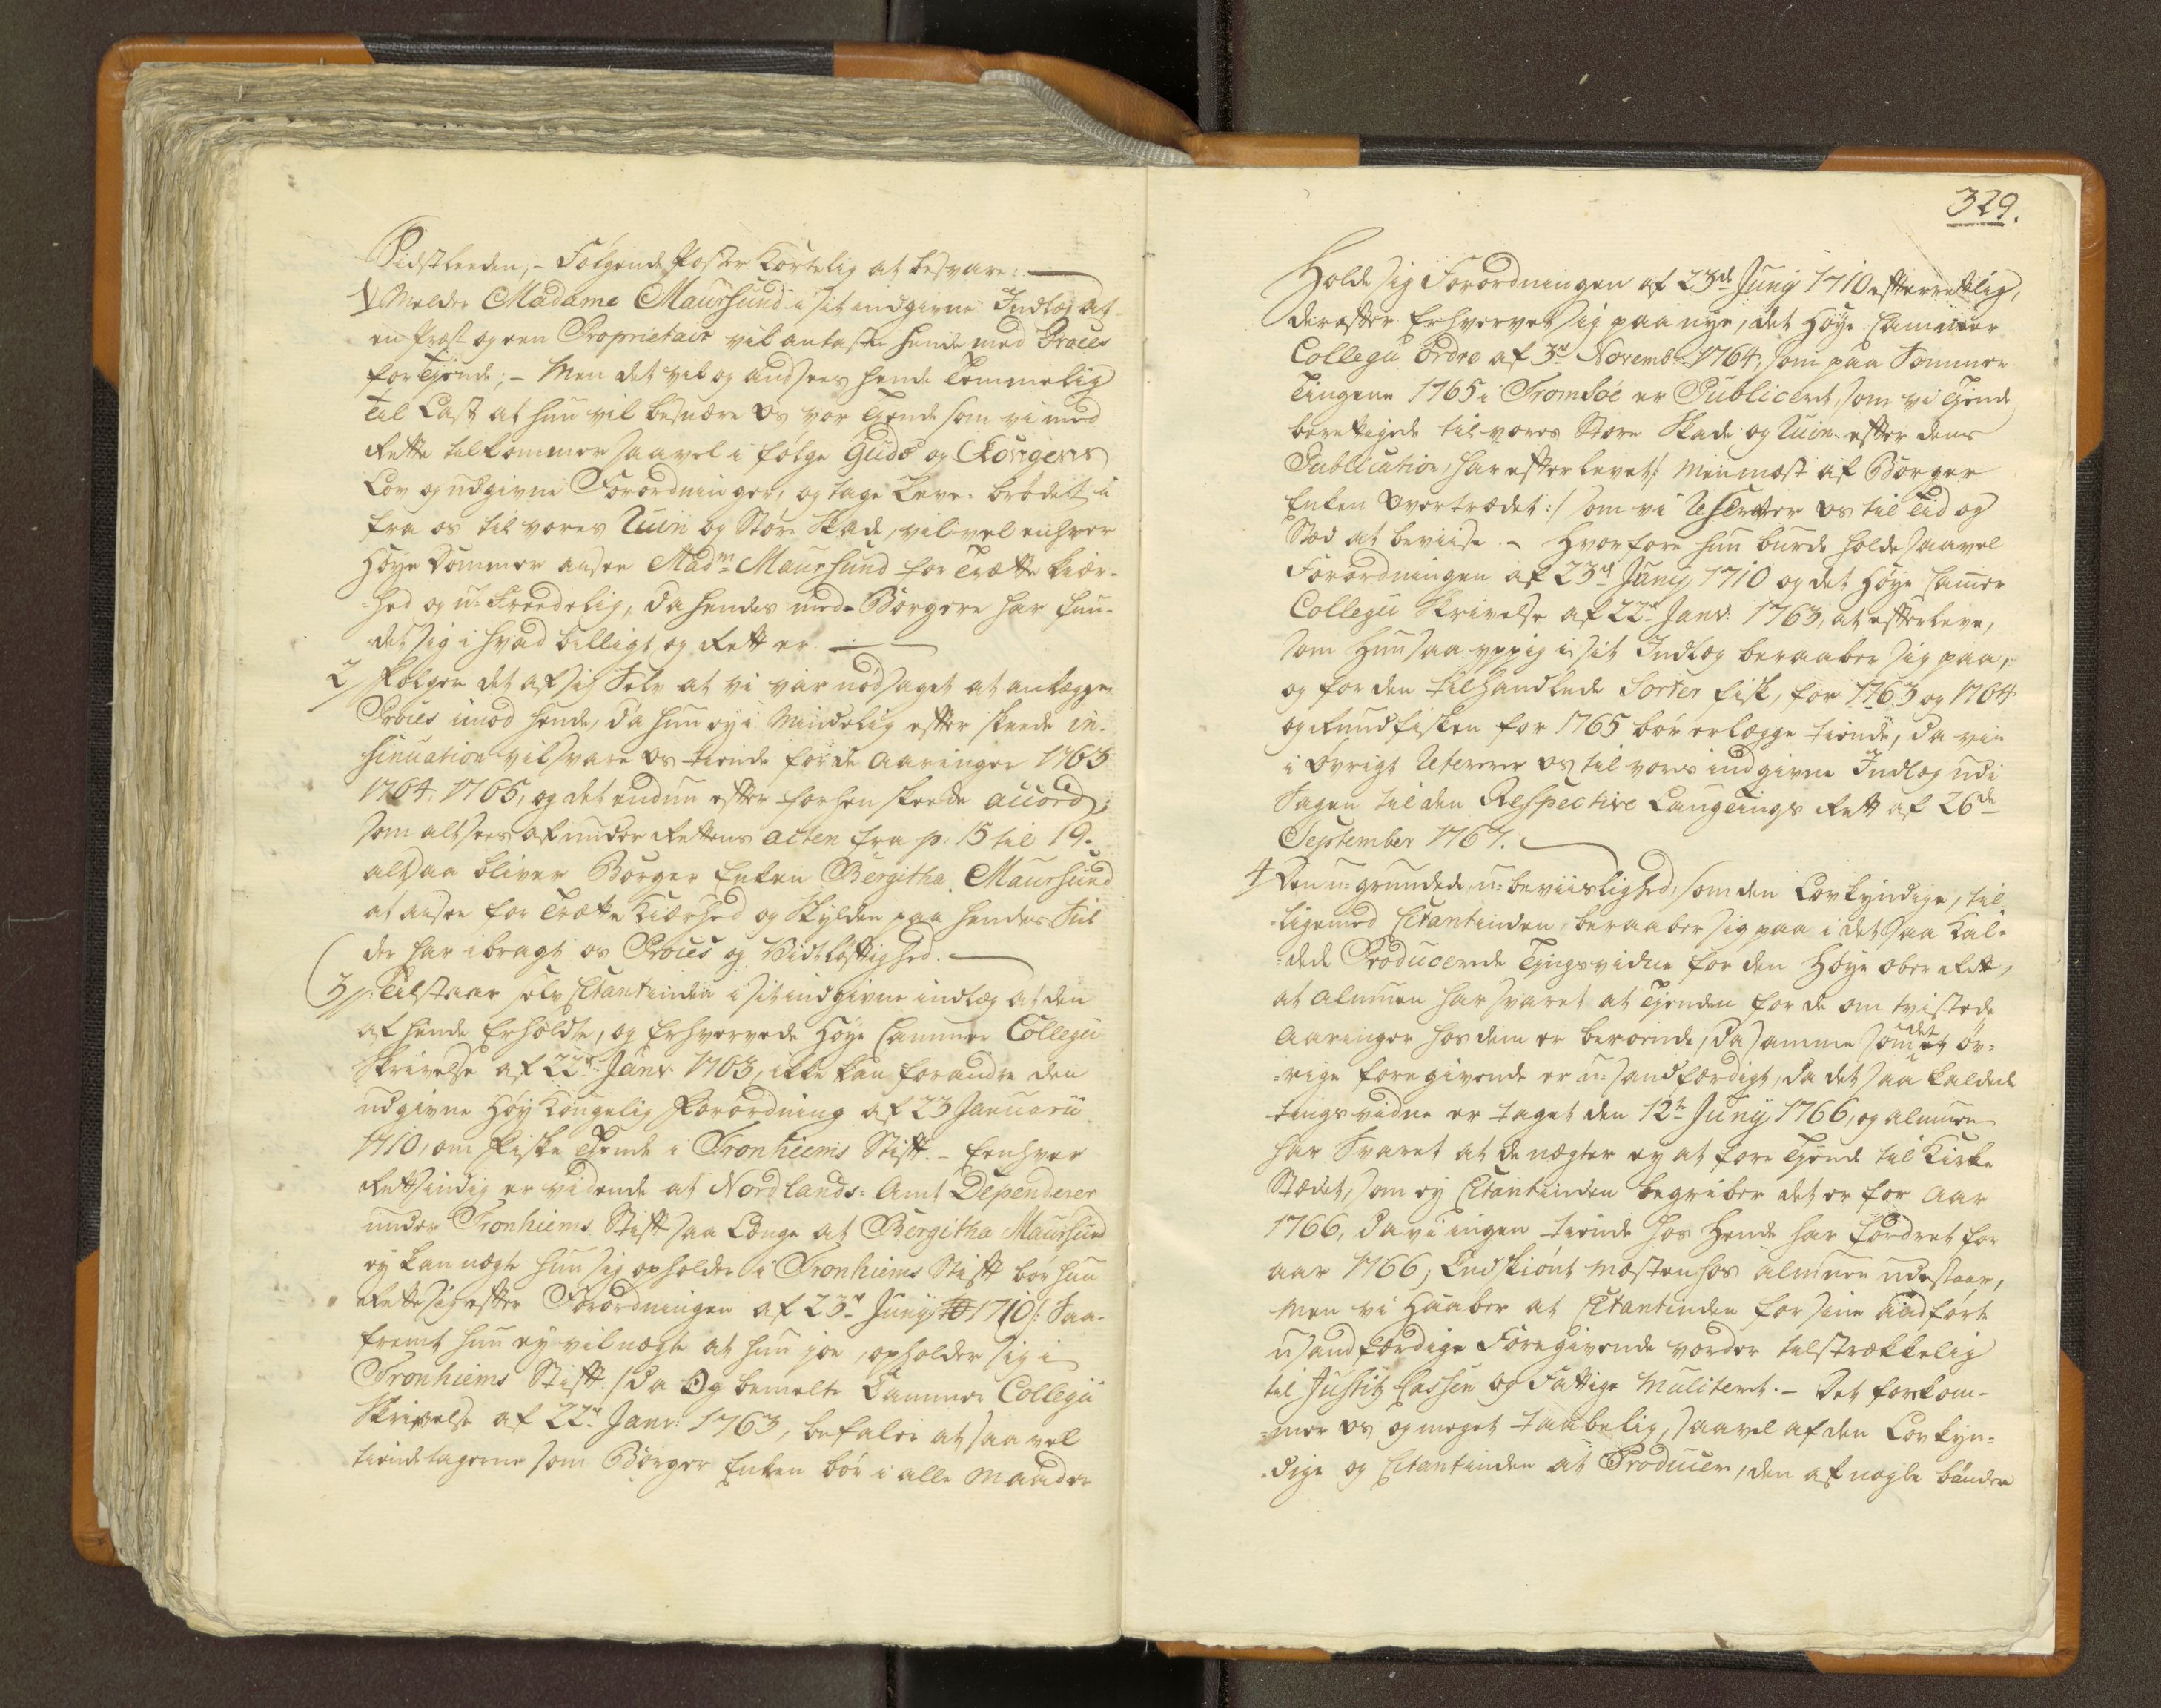 Sidstleeden, – Følgende Poster Kortelig at besvare: —
1/ Melder Madame Maursund i sit indgivne Indlæg at
en Præst og een Proprietair vil antaste hende med Proces
for Tjende; – Men det vil og ansees hende Temmelig
til Last at hun vil besnære os vor Tjende som vi med
Rette tilkommer saavel i følge Guds og Kongens
Lov og udgivne Forordninger, og tage Leve-brødet
fra os til vores Ruin og Store Skade, vil vel enhver
Høye Dommer ansee Mad:m Maursund for Trættekiær-
hed og u-freedelig, da hendes med-Borgere har fun-
det sig i hvad billigt og Rett er. —
2/ Følger det af sig Selv at vi var nødsaget at anlægge
Proces imod hende, da hun ey i Mindelig efter skeede in-
sinuation vil svare os tiende for de Aaringer 1763
1764, 1765, og det endnu efter forhen skeede accord;
som alt sees af under Rettens acten fra p. 15 til 19.
altsaa bliver Borger Enken Bergitha Maursund
at ansee for Trætte Kiærhed og Skylden paa hendes Siide
der har ibragt os Proces og Vidtløftighed. —
3/ Tilstaar selv Citantinden i sit indgivne indlæg at den
af hende Erholdte, og Erhvervede Høye Cammer Collegii
Skrivelse af 22d Janv: 1763, ikke kan forandre den
udgivne Høy Kongelig Forordning af 23 Januarii
1710, om Fiske Tiende i Tronhiems Stift. – Eenhver
Rettsindig er vidende at Nordlands-Amt Dependerer
under Tronhiems Stift saa Længe at Bergitha Maursund
ey kan nægte hun sig opholder i Tronhiems Stift bør hun
Rette sig efter Forordningen af 23d Junij 1710 /: Saa-
fremt hun ey vil nægte at hun joe, opholder sig i
Tronhiems Stift :/ da Og bemelte Cammer Collegii
Skrivelse af 22d Janv: 1763, befaler at saavel
tiendetagerne som Borger Enken bør i alle Maader
329.
Holde sig Forordningen af 23de Junij 1710 efterretlig,
derefter Erhvervet sig paa nye, det Høye Cammer
Collegii Ordre af 3d Novembr 1764, som paa Sommer
Tingene 1765 i Tromsøe er Publiceret, som vi Tiende
berettigede til vores Store Skade og Ruin efter dens
Publication, har efterlevet /: Men mest af Borger
Enken Overtrædet :/ som vi os til Tid og
Stæd at beviise. – Hvorfore hun burde holde saavel
Forordningen af 23d Junij 1710 og det Høye Cammer
Collegii Skrivelse af 22d Janv: 1763, at efterleve,
som Hun saa yppig i sit Indlæg beraaber sig paa,
og for den tilhandlede Sorter fisk, for 1763 og 1764
og Rundfisken for 1765 bør erlægge tiende, da vi
i øvrigt os til vores indgivne Indlæg udi
Sagen til den Respective Laugtings Rett af 26de
September 1767. —
4/ Den u-grundede u-beviislighed, som den Lovkyndige, til-
ligemed Citantinden, beraaber sig paa i det saa kal-
dede Producerede Tingsvidne for den Høye ober Rett,
at almuen har svaret at Tjenden for de om tvistede
Aaringer hos dem er beroende, da samme som det øv-
rige foregivende er u-sandfærdigt, da det saa kaldede
tings vidne er taget den 12te Junij 1766, og almuen
har Svaret at de nægter ey at føre Tjende til Kirke
Stædet, som ey Citantinden begriber det er for Aar
1766, da vi ingen tiende hos Hende har fordret for
aar 1766; Endskiønt mesten hos almuen udestaar,
Men vi Haaber at Citantinden for sine anførte
usandfærdige Foregivende vorder tilstrækkelig
til Justitz Cassen og Fattige Mulcteret. – Det forekom-
mer os og meget taabelig, saavel af den Lovkyn-
dige og Citantinden at Producere, den af nogle bønder